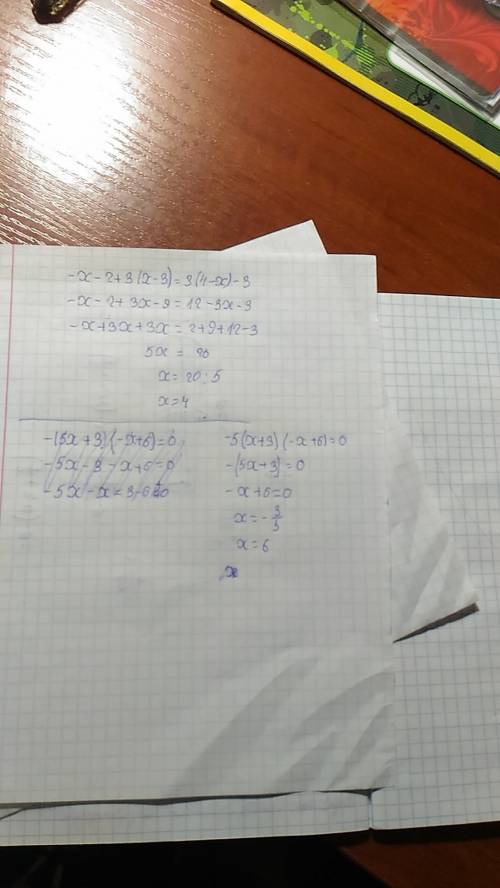 -x-2+3(x-3)=3(4-x)-3
-x-2+3x-9=12-3x-3
-x+3x+3x=2+9+12-3
5x = 20
x=20:5
x=4
-(5x+3)(-x+6)=0
-5x-3-x+6=0
-5x-x=3-6
-5(x+3)(-x+6)=0
-(5x+3)=0
-x+6=0
x=-3/5
x=6